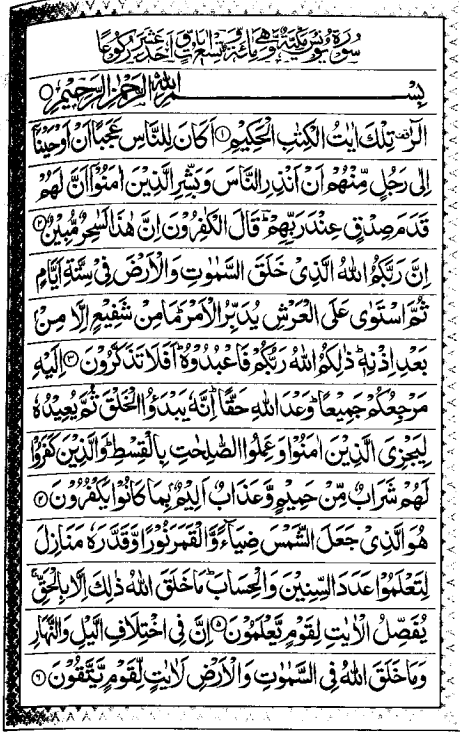 سورة يونس مكية وهي مائة وتسع اية واحد عشر ركوعا
بسم الله الرحمن الرحيم
الٓرٰ تِلْكَ اٰيٰتُ الْكِتٰبِ الْحَكِيْمِ ۝۱ اَكَانَ لِلنَّاسِ عَجَبًا اَنْ اَوْحَيْنَآ
اِلٰى رَجُلٍ مِّنْهُمْ اَنْ اَنْذِرِ النَّاسَ وَبَشِّرِ الَّذِيْنَ اٰمَنُوْٓا اَنَّ لَهُمْ
قَدَمَ صِدْقٍ عِنْدَ رَبِّهِمْ ؕ قَالَ الْكٰفِرُوْنَ اِنَّ هٰذَا لَسٰحِرٌ مُّبِيْنٌ ۝۲
اِنَّ رَبَّكُمُ اللّٰهُ الَّذِيْ خَلَقَ السَّمٰوٰتِ وَالْاَرْضَ فِيْ سِتَّةِ اَيَّامٍ
ثُمَّ اسْتَوٰى عَلَى الْعَرْشِ يُدَبِّرُ الْاَمْرَ ؕ مَا مِنْ شَفِيْعٍ اِلَّا مِنْۢ
بَعْدِ اِذْنِهٖ ؕ ذٰلِكُمُ اللّٰهُ رَبُّكُمْ فَاعْبُدُوْهُ ؕ اَفَلَا تَذَكَّرُوْنَ ۝۳ اِلَيْهِ
مَرْجِعُكُمْ جَمِيْعًا ؕ وَعْدَ اللّٰهِ حَقًّا ؕ اِنَّهٗ يَبْدَؤُا الْخَلْقَ ثُمَّ يُعِيْدُهٗ
لِيَجْزِيَ الَّذِيْنَ اٰمَنُوْا وَعَمِلُوا الصّٰلِحٰتِ بِالْقِسْطِ ؕ وَالَّذِيْنَ كَفَرُوْا
لَهُمْ شَرَابٌ مِّنْ حَمِيْمٍ وَّعَذَابٌ اَلِيْمٌۢ بِمَا كَانُوْا يَكْفُرُوْنَ ۝۴
هُوَ الَّذِيْ جَعَلَ الشَّمْسَ ضِيَآءً وَّالْقَمَرَ نُوْرًا وَّقَدَّرَهٗ مَنَازِلَ
لِتَعْلَمُوْا عَدَدَ السِّنِيْنَ وَالْحِسَابَ ؕ مَا خَلَقَ اللّٰهُ ذٰلِكَ اِلَّا بِالْحَقِّ ۚ
يُفَصِّلُ الْاٰيٰتِ لِقَوْمٍ يَّعْلَمُوْنَ ۝۵ اِنَّ فِي اخْتِلَافِ الَّيْلِ وَالنَّهَارِ
وَمَا خَلَقَ اللّٰهُ فِي السَّمٰوٰتِ وَالْاَرْضِ لَاٰيٰتٍ لِّقَوْمٍ يَّتَّقُوْنَ ۝۶